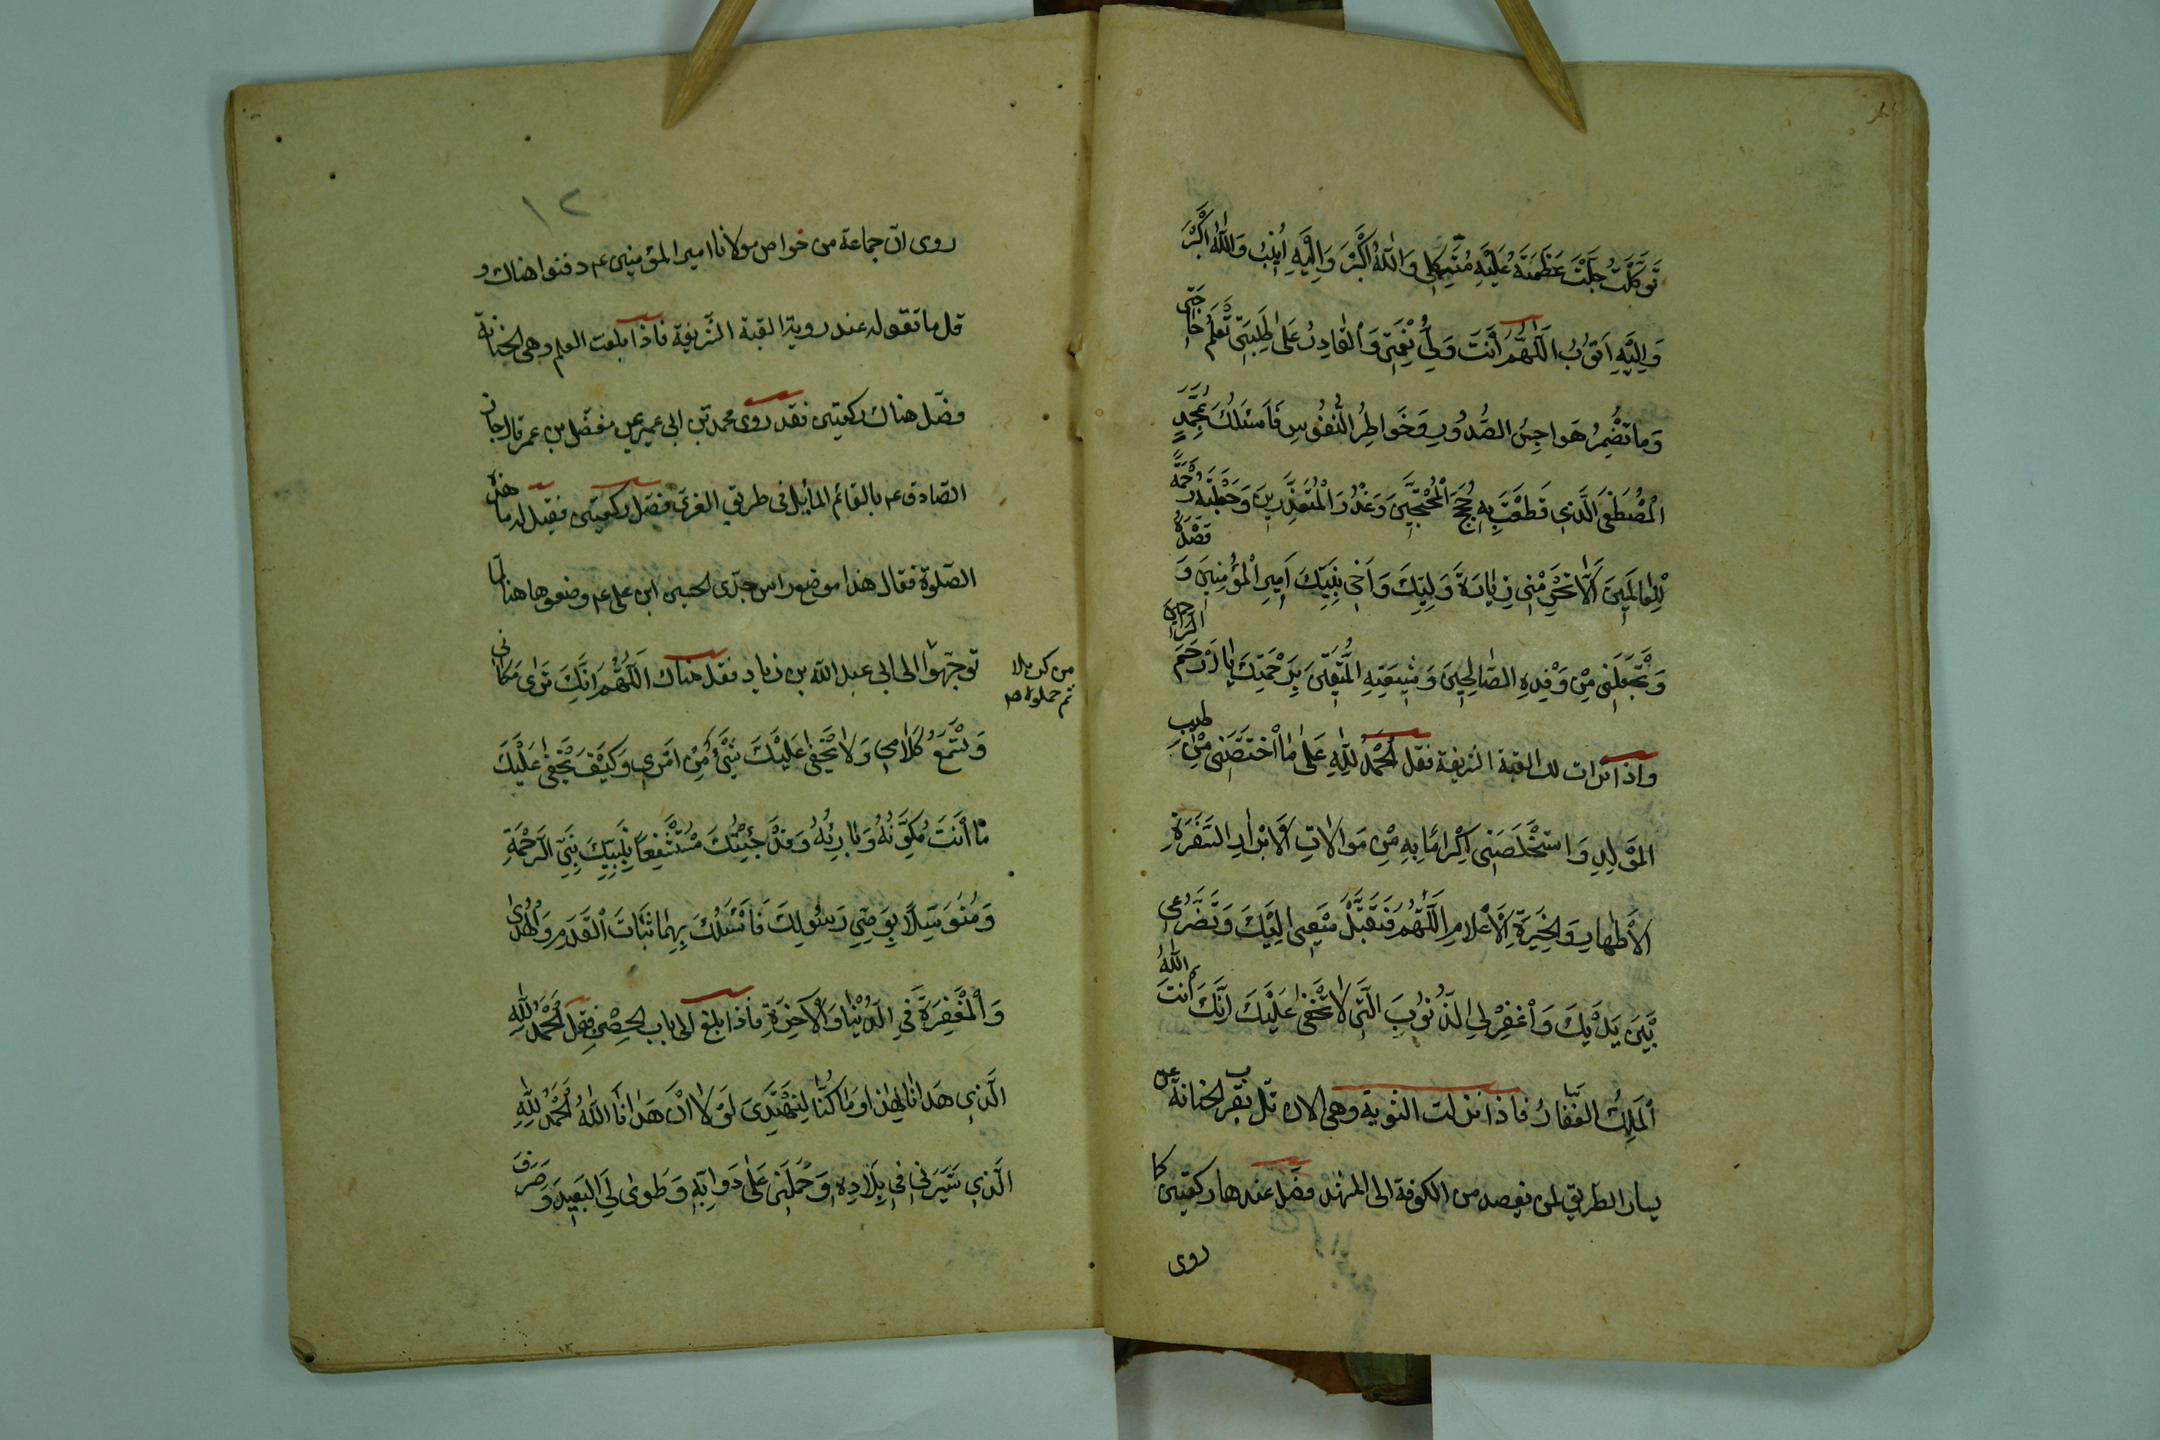 تَوَكَّلْتُ جَلَّتْ عَظَمَتُهُ عَلَيْهِ مُتَّكَلِي وَاللّٰهُ اَكْبَرُ وَاِلَيْهِ اُنِيبُ وَاللّٰهُ اَكْبَرُ
وَاِلَيْهِ اَتُوبُ اَللّٰهُمَّ اَنْتَ وَلِيُّ نِعْمَتِي وَالْقَادِرُ عَلٰى طَلِبَتِي تَعْلَمُ حَاجَتِي
وَمَا تُضْمِرُ هَوَاجِسُ الصُّدُورِ وَخَوَاطِرُ النُّفُوسِ فَاَسْئَلُكَ بِمُحَمَّدٍ
الْمُصْطَفَى الَّذِي قَطَعْتَ بِهِ حُجَجَ الْمُحْتَجِّينَ وَعُذْرَ الْمُعْتَذِرِينَ وَجَعَلْتَهُ رَحْمَةً
لِلْعَالَمِينَ اَلَّا تَحْرِمَنِي زِيَارَةَ وَلِيِّكَ وَاَخِي نَبِيِّكَ اَمِيرِ الْمُؤْمِنِينَ وَ قَصْدَهُ
وَتَجْعَلَنِي مِنْ وَفْدِهِ الصَّالِحِينَ وَشِيعَتِهِ الْمُتَّقِينَ بِرَحْمَتِكَ يَا اَرْحَمَ الرَّاحِمِينَ
وَاذا تراات لك القبة الشريفة فقل اَلْحَمْدُ لِلّٰهِ عَلٰى مَا اخْتَصَّنِي مِنْ طِيبِ
الْمَوْلِدِ وَاسْتَخْلَصَنِي اِكْرَامًا بِهِ مِنْ مَوَالَاتِ الْاَبْرَارِ السَّفَرَةِ
الْاَطْهَارِ وَالْخِيَرَةِ الْاَعْلَامِ اَللّٰهُمَّ فَتَقَبَّلْ سَعْيِي اِلَيْكَ وَتَضَرُّعِي
بَيْنَ يَدَيْكَ وَاغْفِرْ لِي الذُّنُوبَ الَّتِي لَا تَخْفٰى عَلَيْكَ اِنَّكَ اَنْتَ اللّٰهُ
الْمَلِكُ الْغَفَّارُ فاذا نزلت الثوية وهى الان تل بقرب الحنانة عن
يسار الطريق لمن يقصد من الكوفة الى المشهد فصَلّ عندها ركعتين كما
روى
١٢
روى انّ جماعة من خواص مولانا امير المؤمنين ع م دفنوا هناك و
قل ما تقوله عند روية القبة الشريفة فاذا بلغت العلم وهى الحنانة
فصَل هناك ركعتين فقد روى محمد بن ابى عمير عن مفضل بن عمر قال جاز
الصّادق ع م بالقائم المأيل فى طريق الغرى فصَلى ركعتين فقيل له ما هذه
الصّلوة فقال هذا موضع راس جدّى الحسين ابن على ع م وضعوها هنا لمّا
توجّهوا الى ابى عبد الله بن زياد فقل هناك اَللّٰهُمَّ اِنَّكَ تَرٰى مَكَانِى
من كربلا
ثم حملوه صح
وَتَسْمَعُ كَلَامِي وَلَا يَخْفٰى عَلَيْكَ شَيْءٌ مِنْ اَمْرِي وَكَيْفَ يَخْفٰى عَلَيْكَ
مَا اَنْتَ مُكَوِّنُهُ وَبَارِئُهُ وَقَدْ جِئْتُكَ مُسْتَشْفِعًا بِنَبِيِّكَ نَبِيِّ الرَّحْمَةِ
وَمُتَوَسِّلًا بِوَصِيِّ رَسُولِكَ فَاَسْئَلُكَ بِهِمَا ثَبَاتَ الْقَدَمِ وَالْهُدٰى
وَالْمَغْفِرَةَ فِي الدُّنْيَا وَالْآخِرَةِ فاذا بلغ الى باب الحِصْنِ فقل اَلْحَمْدُ لِلّٰهِ
الَّذِي هَدَانَا لِهٰذَا وَمَا كُنَّا لِنَهْتَدِيَ لَوْلَا اَنْ هَدَانَا اللّٰهُ اَلْحَمْدُ لِلّٰهِ
الَّذِي سَيَّرَنِي فِي بِلَادِهِ وَحَمَلَنِي عَلٰى دَوَابِّهِ وَطَوٰى لِيَ الْبَعِيدَ وَصَرَفَ